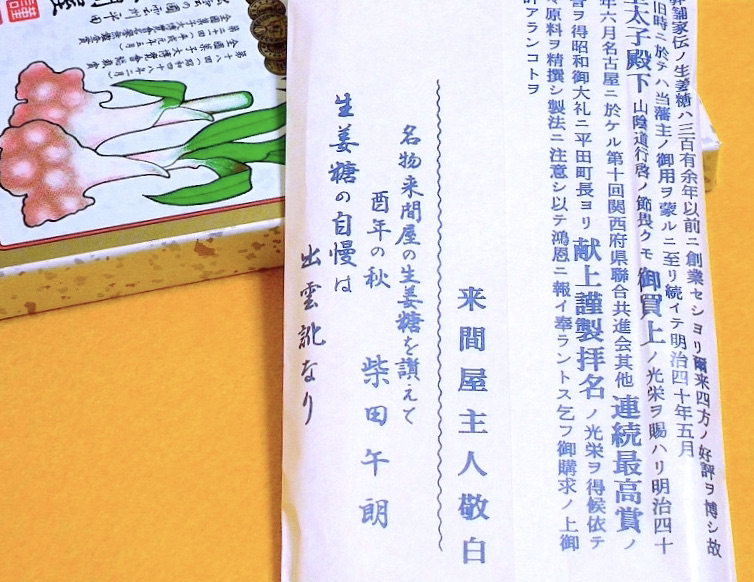 舗家伝ノ生姜糖ハ三百有余年以前ニ創業セシヨリ爾来四方ノ好評ヲ博シ故
旧時ニ於テハ当藩主ノ御用ヲ蒙ルニ至リ続イテ明治四十年五月
太子殿下山陰道行啓ノ節畏クモ御買上ノ光栄ヲ賜ハリ明治四十
年六月名古屋ニ於ケル第十回関西府県聯合共進会其他連続最高賞ノ
ヲ得昭和御大礼ニ平田町長ヨリ献上謹製拝名ノ光栄ヲ得候依テ
原料ヲ精撰シ製法ニ注意シ以テ鴻恩ニ報イ奉ラントス乞フ御購求ノ上御
アランコトヲ
来間屋主人敬白
名物来間屋の生姜糖を讃えて
酉年の秋 柴田午朗
生姜糖の自慢は
出雲訛なり
全国菓子大博覧会
第二十一回
全国菓子大博覧会
第十八回(昭和四十八年二月)